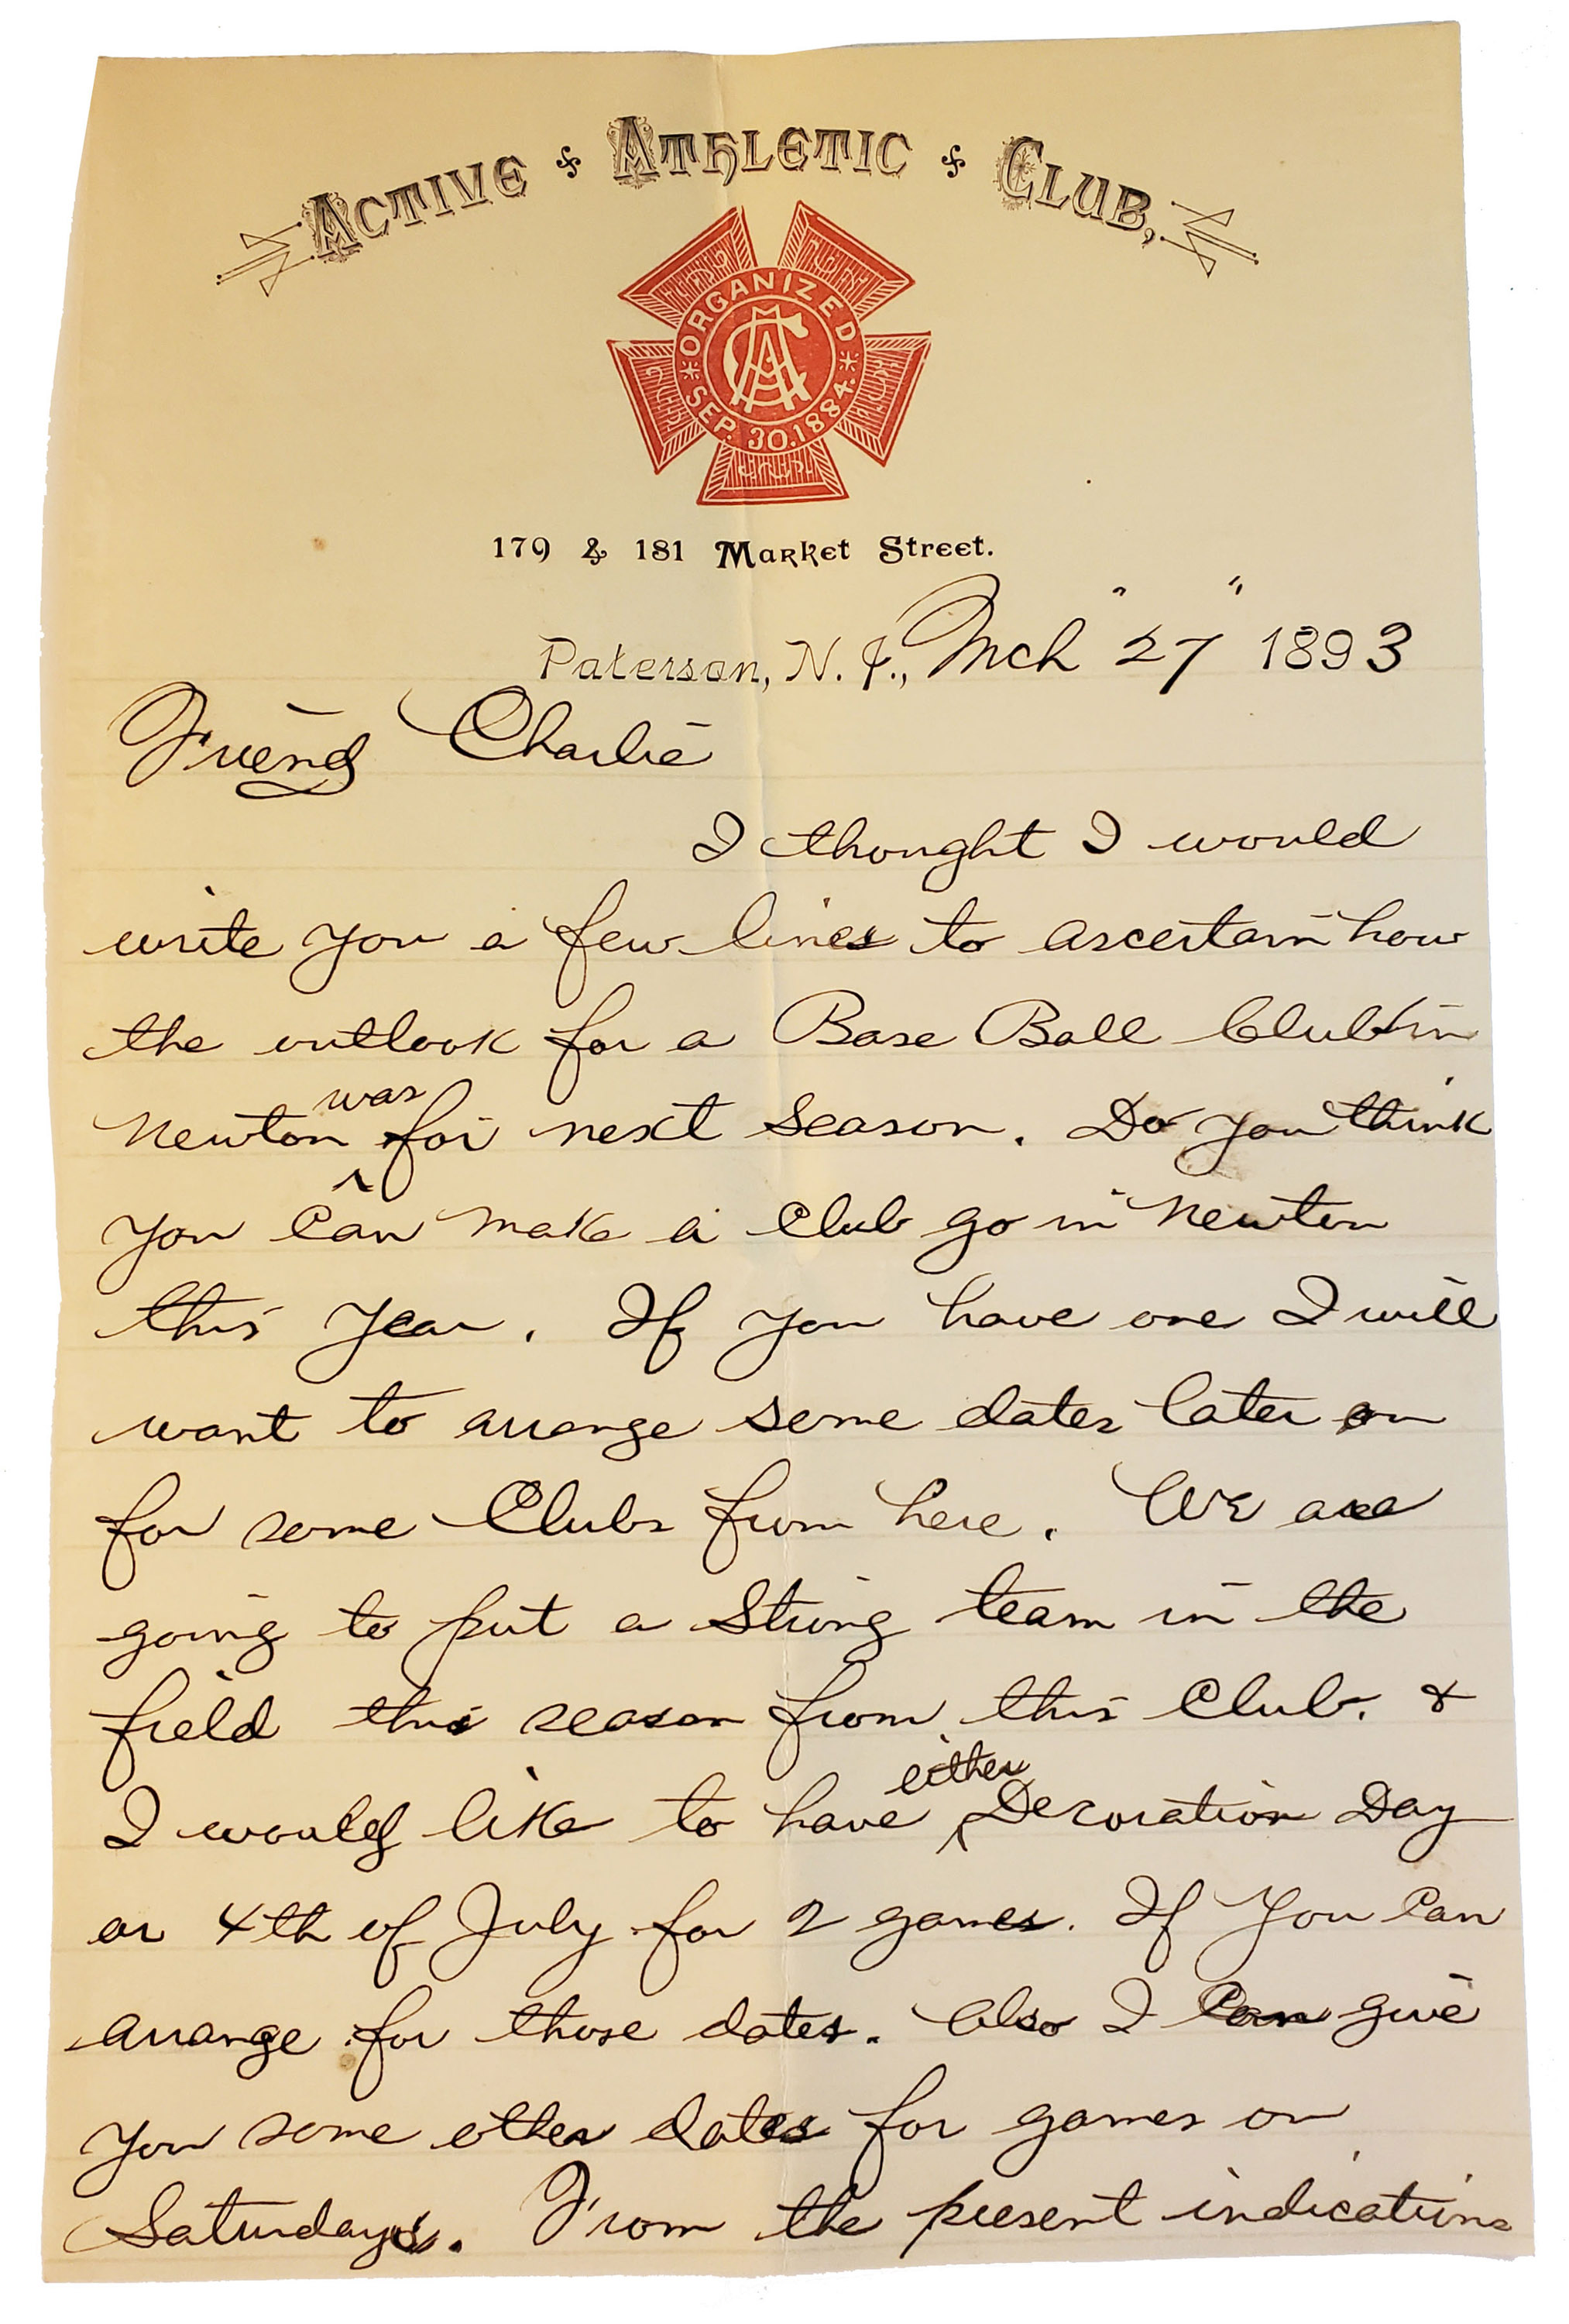 Active Athletic Club,
ORGANIZED
AAC
SEP. 30. 1884.
179 & 181 Market Street.
Paterson, N. J., Mch "27" 1893
Friend Charlie
I thought I would
write you a few lines to ascertain how
the outlook for a Base Ball Club in
was
Newton for next season. Do you think
you can make a club go in Newton
this year. If you have one I will
want to arrange some dates later on
for some Clubs from here. We are
going to put a Strong team in the
field this season from this Club. &
either
I would like to have Decoration Day
or 4th of July for 2 games. If you can
arrange for those dates. Also I can give
you some other dates for games on
Saturdays. From the present indications